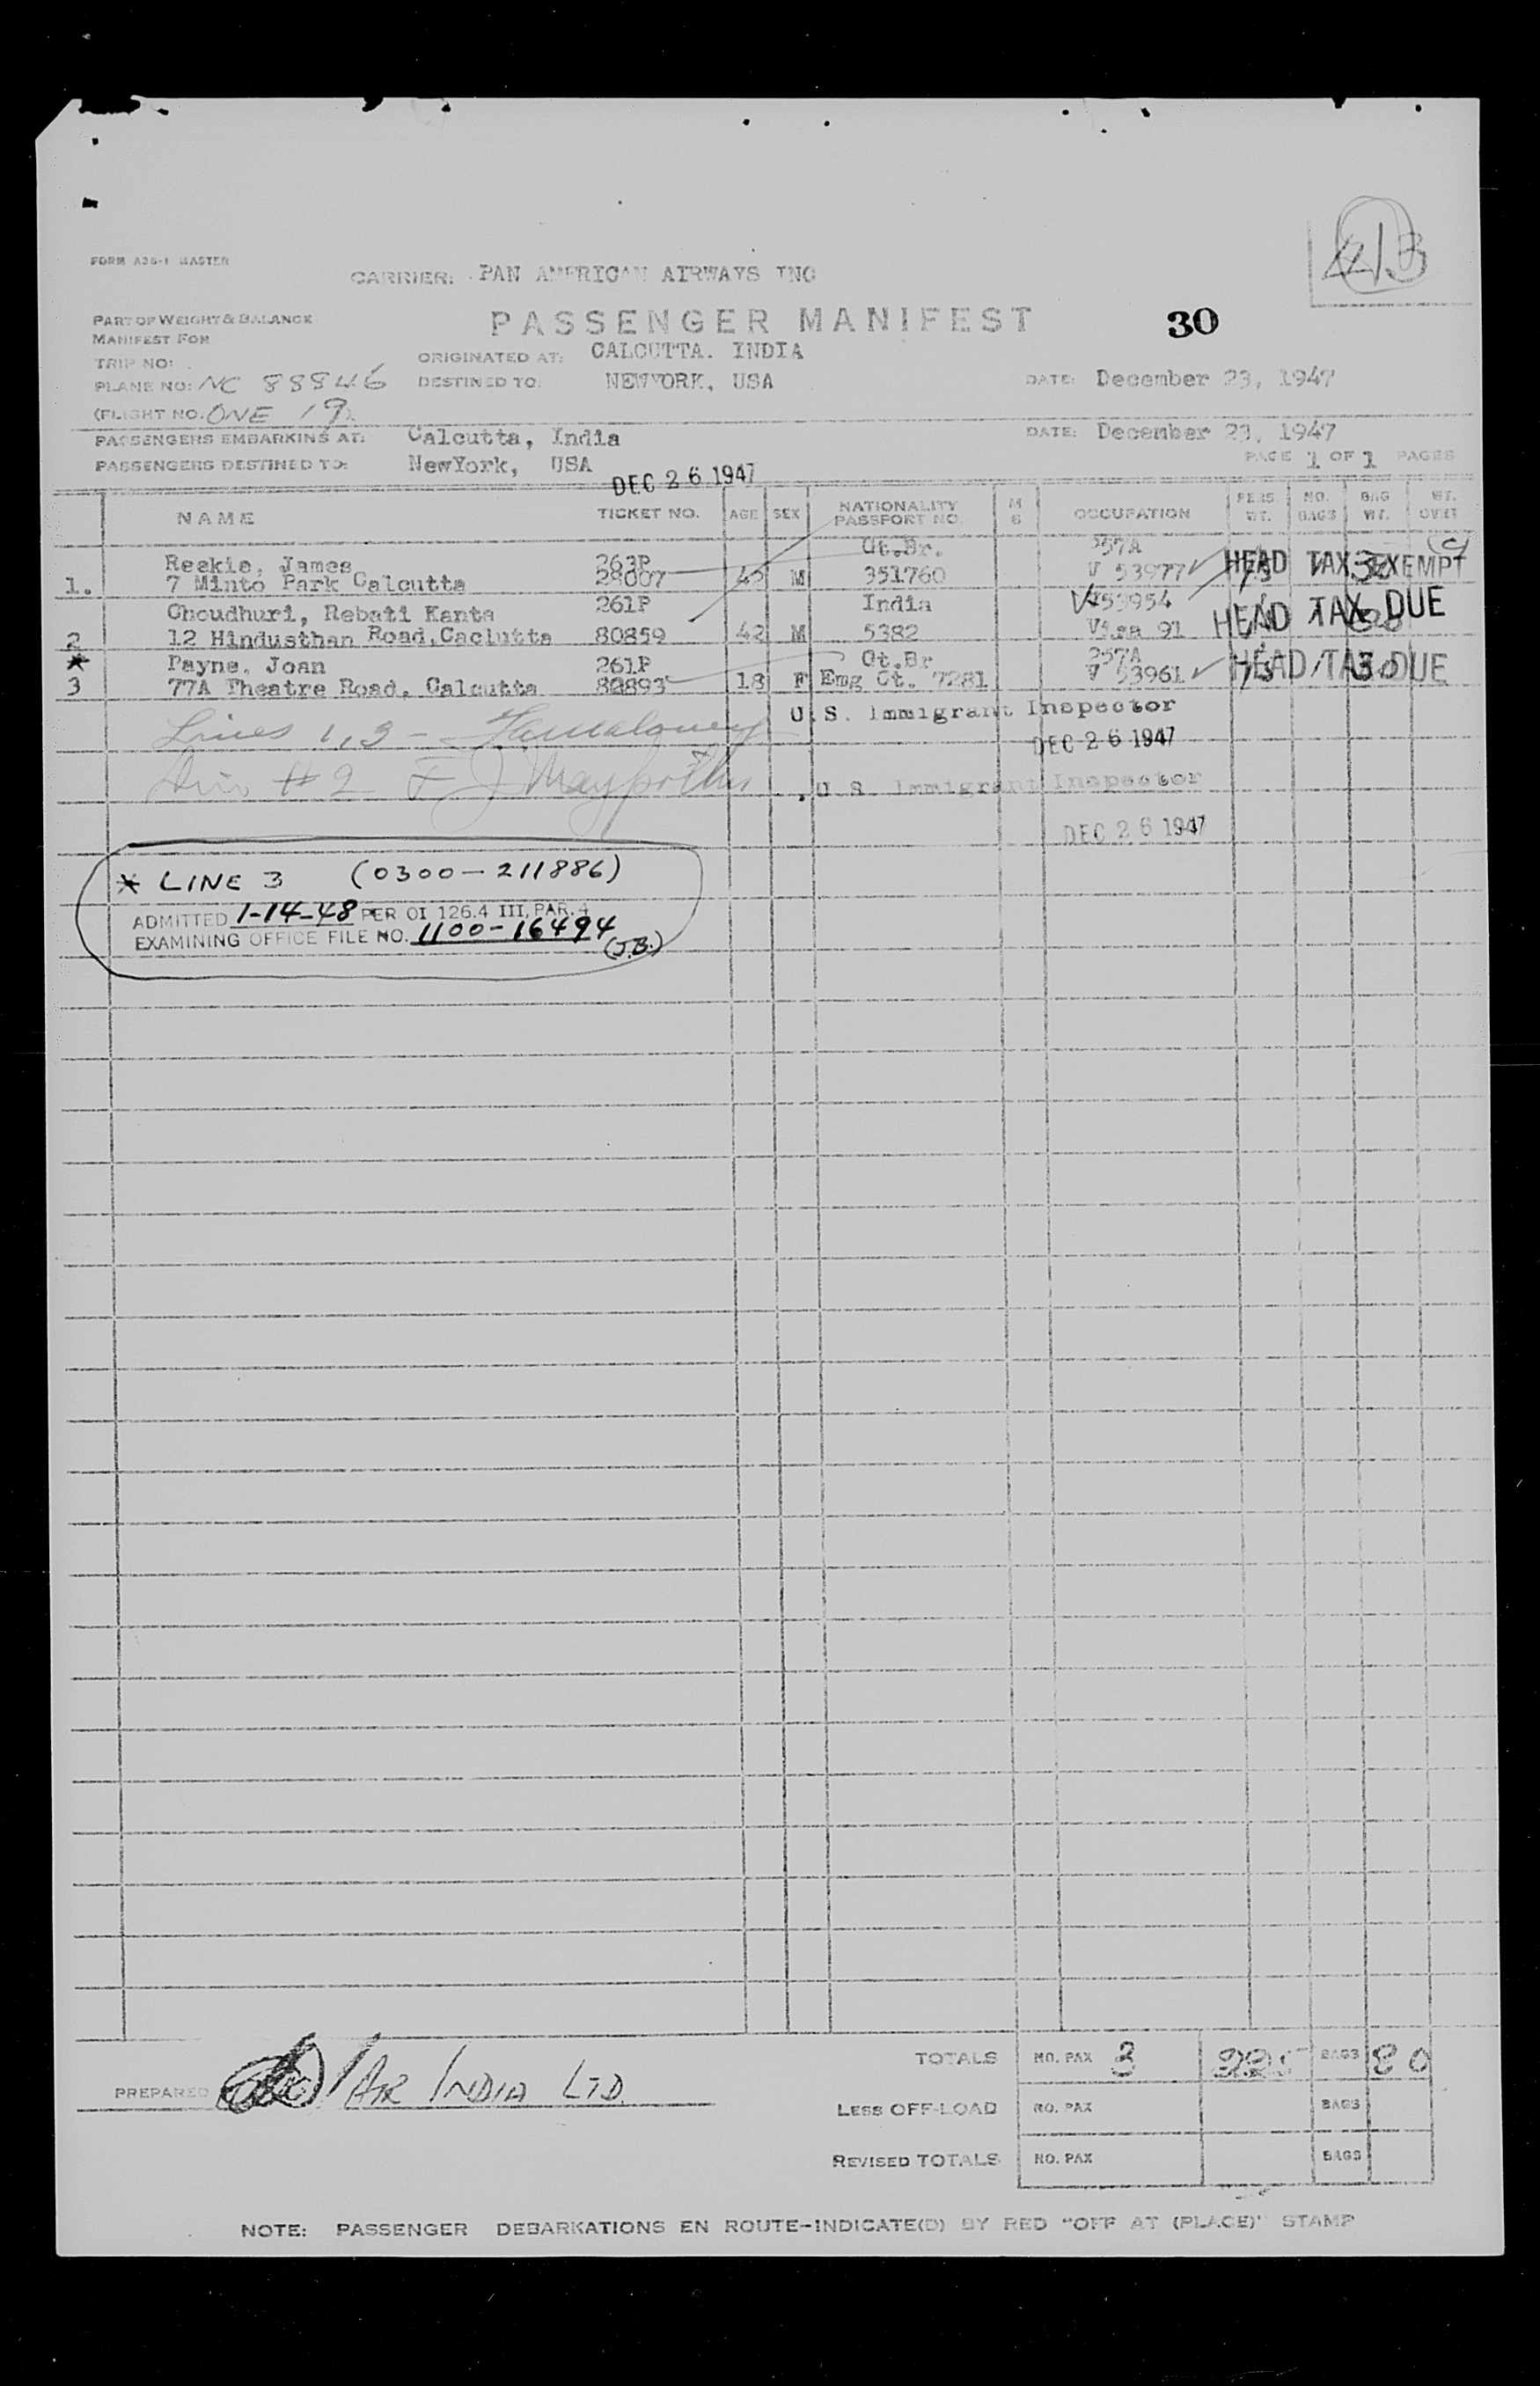 FORM A26-1 MASTER
CARRIER: PAN AMERICAN AIRWAYS INC
PART OF WEIGHT & BALANCE
MANIFEST FOR
PASSENGER MANIFEST 30
TRIP NO:
ORIGINATED AT: CALCUTTA. INDIA
PLANE NO: NC 88846 DESTINED TO: NEWYORK, USA DATE: December 23, 1947
(FLIGHT NO. ONE 19)
PASSENGERS EMBARKING AT: Calcutta, India DATE: December 23, 1947
PASSENGERS DESTINED TO: NewYork, USA PAGE 1 OF 1 PAGES
DEC 26 1947
NAME TICKET NO. AGE SEX NATIONALITY PASSPORT NO. OCCUPATION PERS WT. NO. BAGS BAG WT. WT. OVER
Reekie, James 263P Gt.Br. 257A
1. 7 Minto Park Calcutta 28007 M 351760 V 53977 HEAD TAX EXEMPT
Choudhuri, Rebati Kanta 261P India 53954
2 12 Hindusthan Road, Caclutta 80859 42 M 5382 Visa 91 HEAD TAX DUE
* Payne, Joan 261P Gt.Br 257A
3 77A Theatre Road, Calcutta 82893 18 F Emg Ct. 7281 V 53961 HEAD TAX DUE
Lines 1, 3 - U.S. Immigrant Inspector
DEC 26 1947
#2 U.S. Immigrant Inspector
DEC 26 1947
* LINE 3 (0300-211886)
ADMITTED 1-14-48 PER OI 126.4 III, PAR. 4
EXAMINING OFFICE FILE NO. 1100-16494
(J.B.)
TOTALS NO. PAX 3 225 BAGS 80
PREPARED AIR INDIA LTD.
LESS OFF-LOAD NO. PAX BAGS
REVISED TOTALS NO. PAX BAGS
NOTE: PASSENGER DEBARKATIONS EN ROUTE-INDICATE(D) BY RED "OFF AT (PLACE)" STAMP